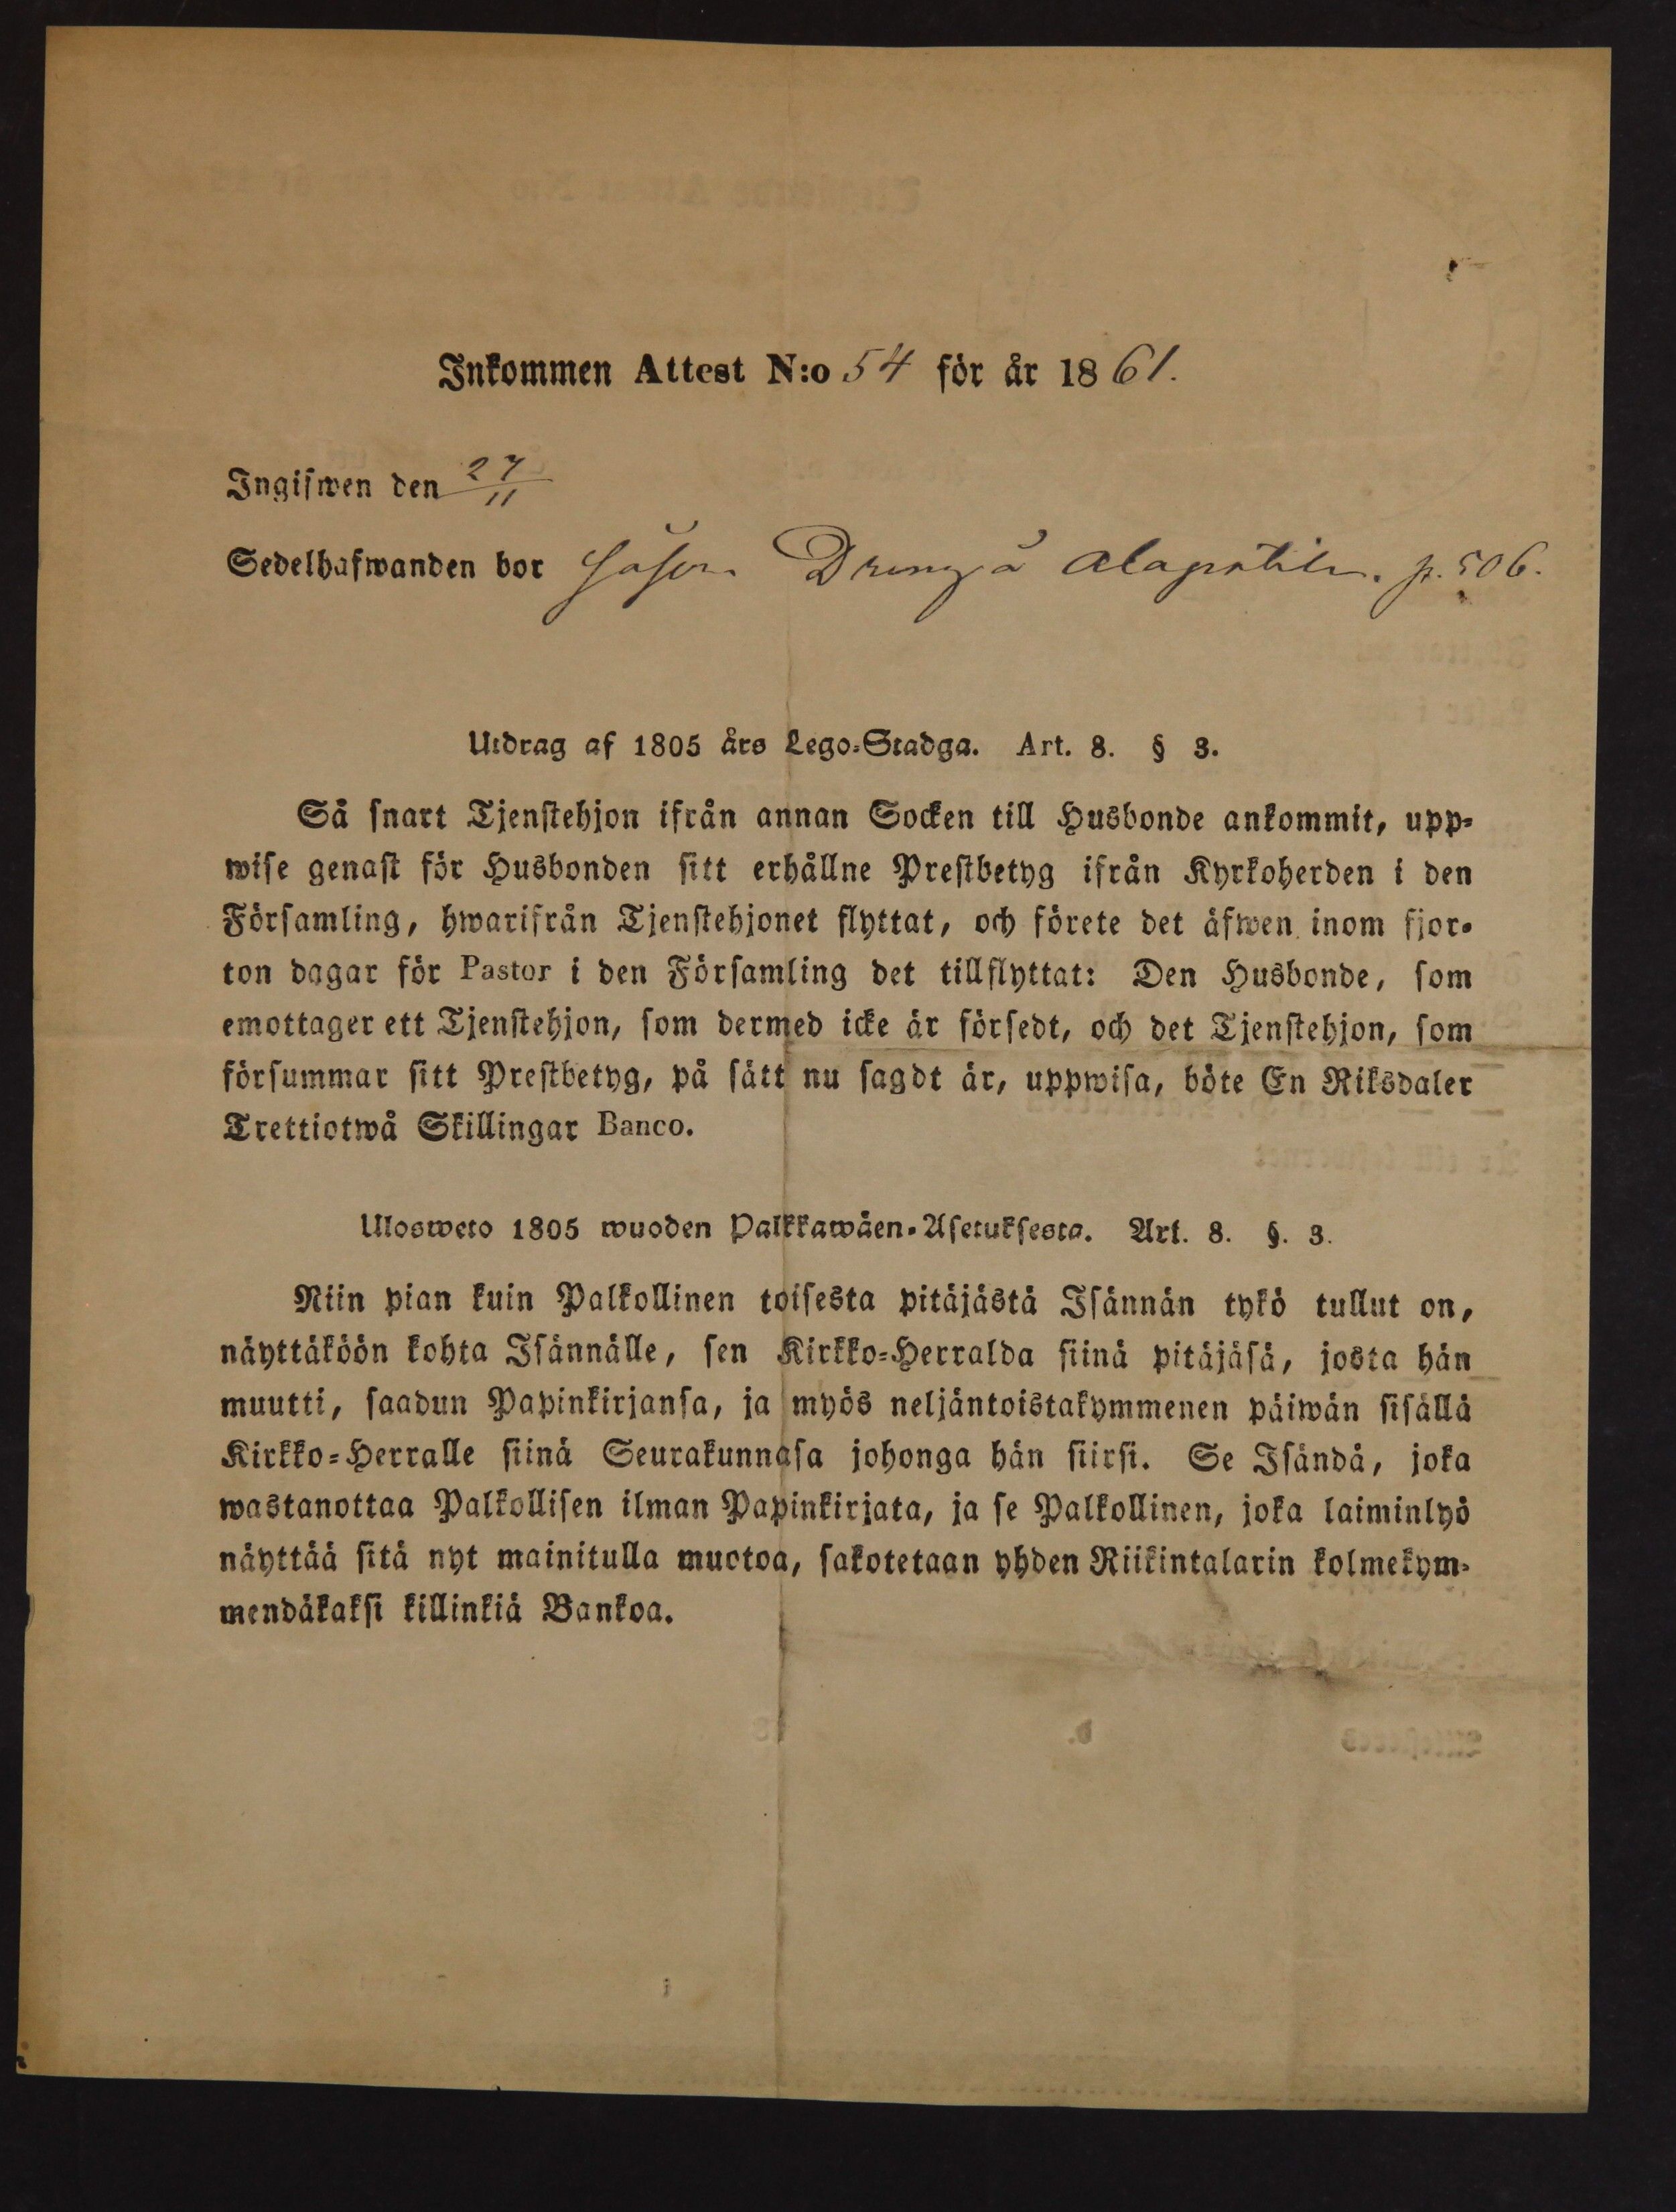 Inkommen Attest N:o 54 för år 1861.
Ingifwen den 27/11
Sedelhafwanden bor såsom Dreng å Alapitilä. p. 506.
Utdrag af 1805 års Lego-Stadga. Art. 8. § 3.
Så snart Tjenstehjon ifrån annan Socken till Husbonde ankommit, upp-
wise genast för Husbonden sitt erhållne Prestbetyg ifrån Kyrkoherden i den
Församling, hwarifrån Tjenstehjonet flyttat, och förete det äfwen inom fjor-
ton dagar för Pastor i den Församling det tillflyttat: Den Husbonde, som
emottager ett Tjenstehjon, som dermed icke är försedt, och det Tjenstehjon, som
försummar sitt Prestbetyg, på sätt nu sagdt är, uppwisa, böte En Riksdaler
Trettiotwå Skillingar Banco.
Ulosweto 1805 wuoden Palkkawäen-Asetuksesta. Art. 8. §. 3.
Niin pian kuin Palkollinen toisesta pitäjästä Isännän tykö tullut on,
näyttäköön kohta Isännälle, sen Kirkko-Herralda siinä pitäjäsä, josta hän
muutti, saadun Papinkirjansa, ja myös neljäntoistakymmenen päiwän sisällä
Kirkko-Herralle siinä Seurakunnasa johonga hän siirsi. Se Isändä, joka
wastanottaa Palkollisen ilman Papinkirjata, ja se Palkollinen, joka laiminlyö
näyttää sitä nyt mainitulla muotoa, sakotetaan yhden Riikintalarin kolmekym-
mendäkaksi killinkiä Bankoa.